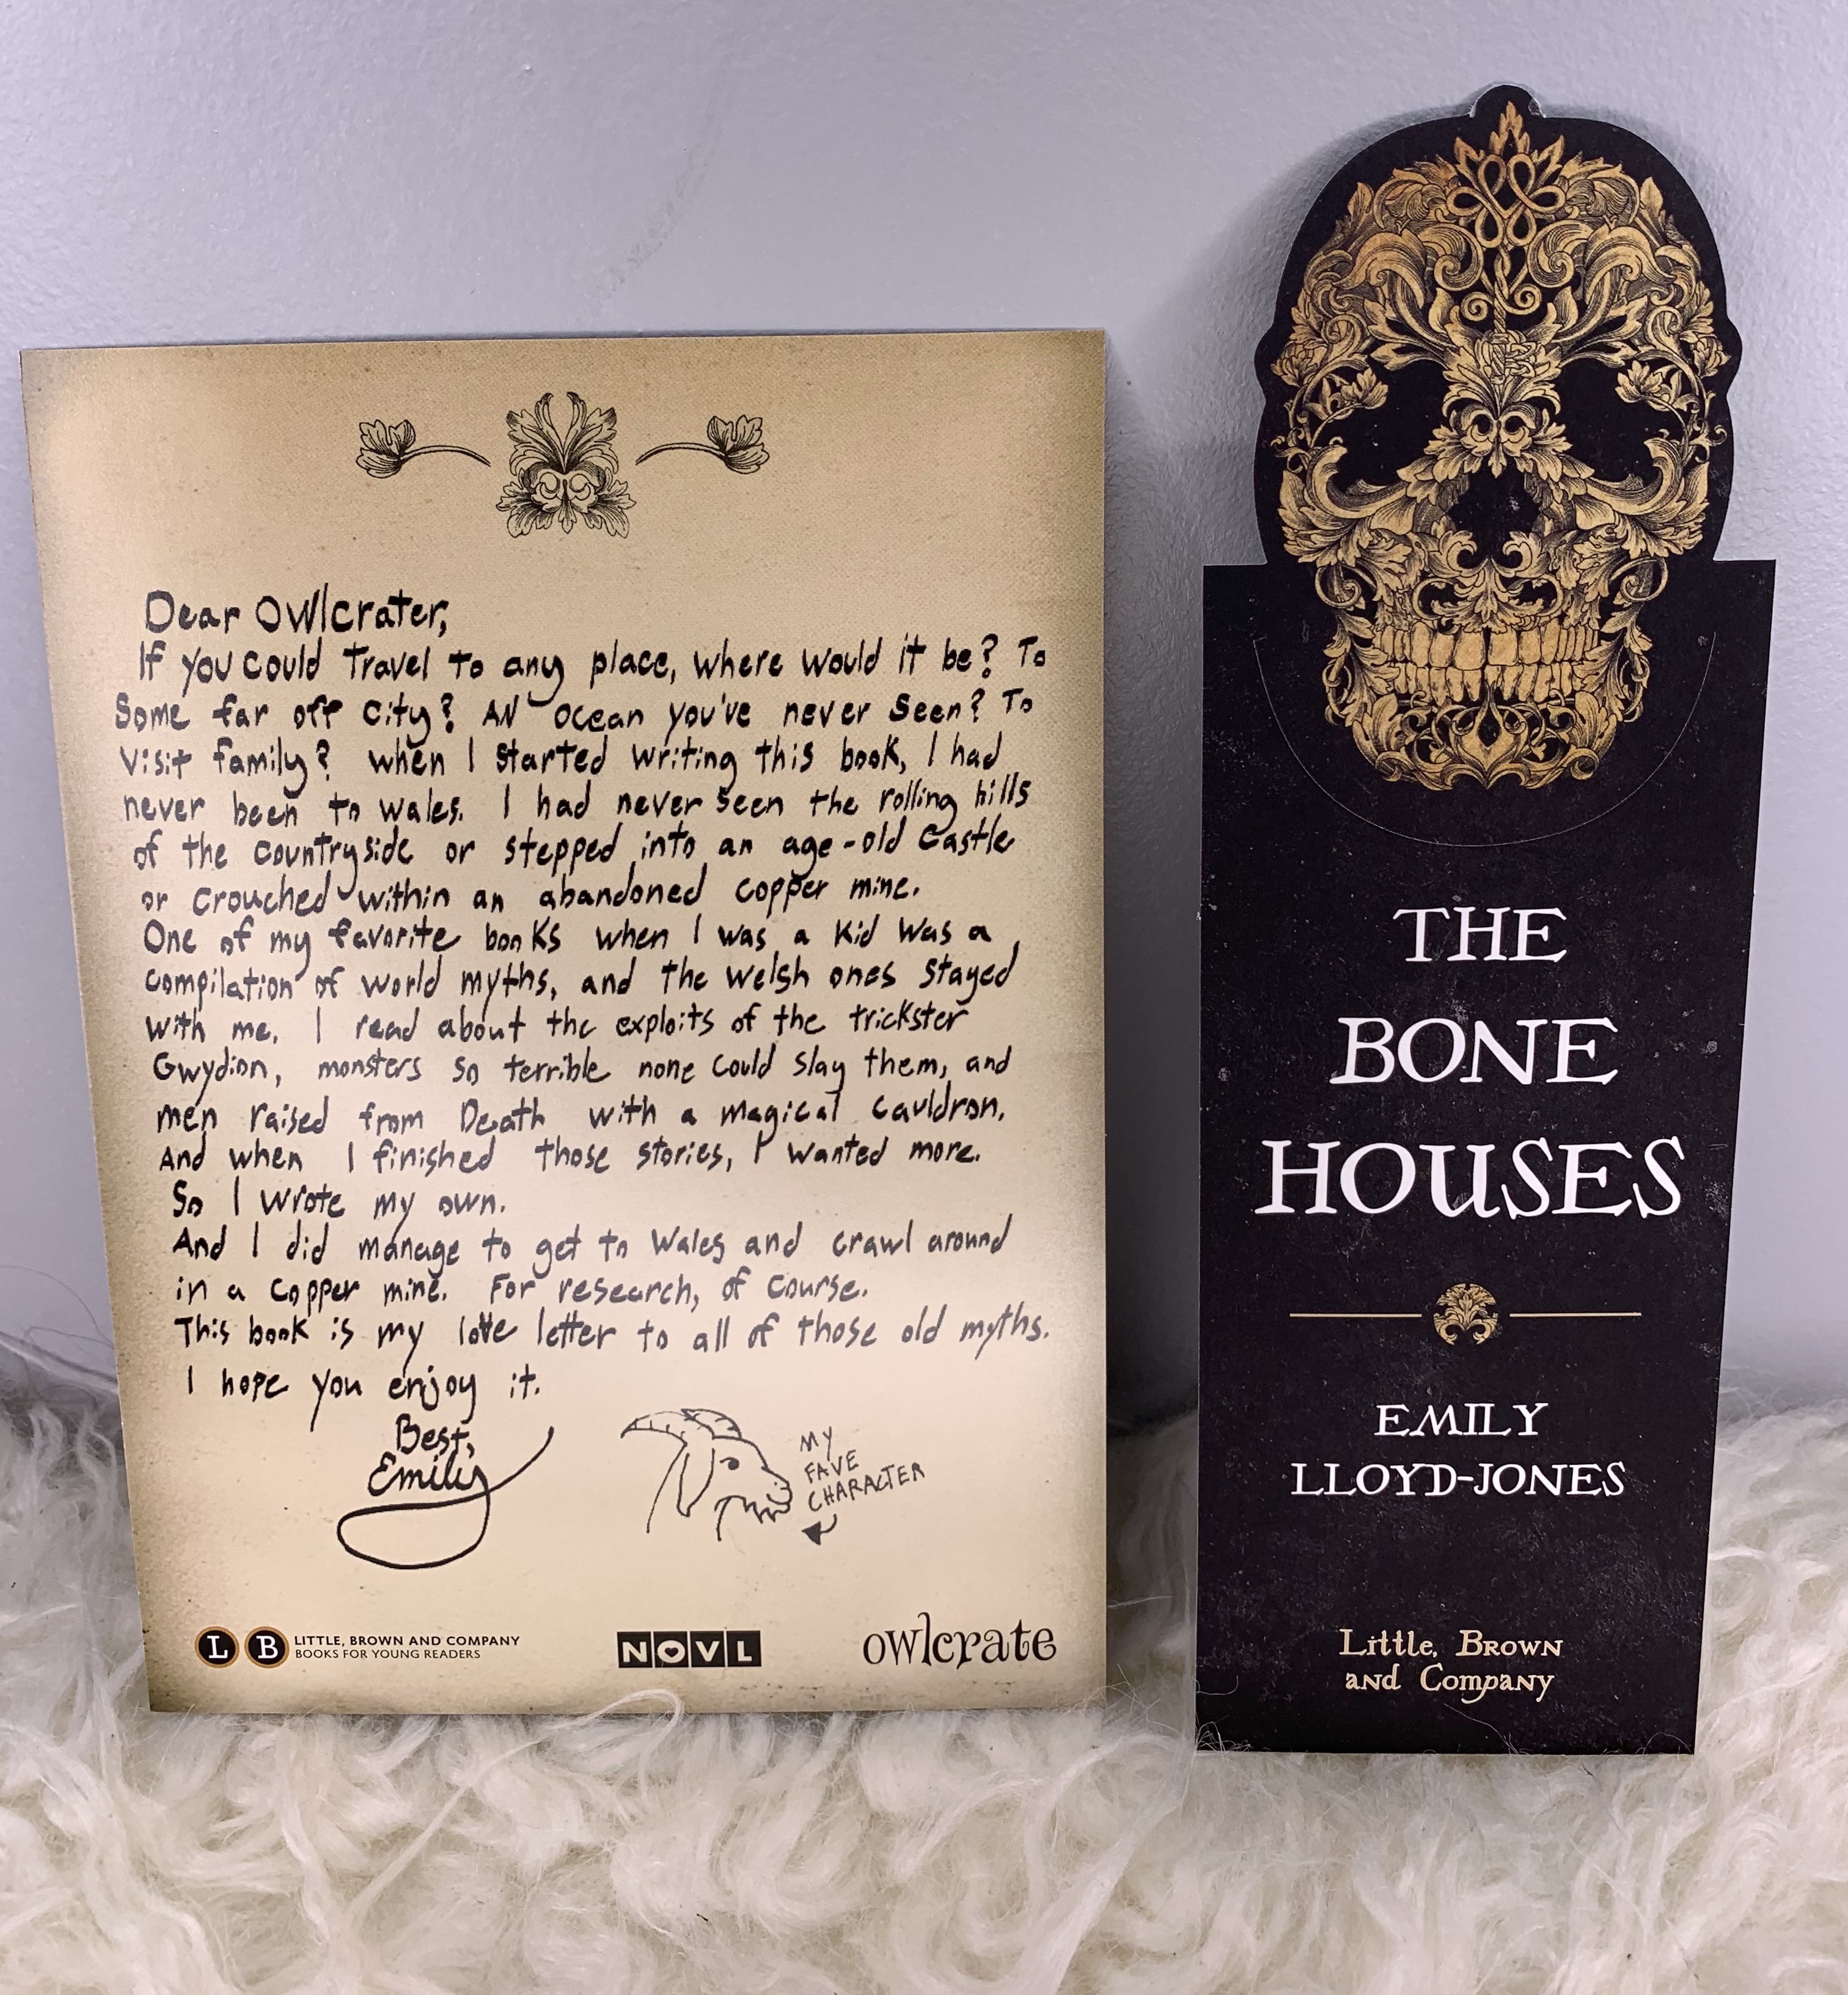 Dear Owlcrater,
If you could travel to any place, where would it be? To
some far off city? An ocean you've never seen? To
visit family? When I started writing this book, I had
never been to Wales. I had never seen the rolling hills
of the countryside or stepped into an age-old castle
or crouched within an abandoned copper mine.
One of my favorite books when I was a kid was a
compilation of world myths, and the Welsh ones stayed
with me. I read about the exploits of the trickster
Gwydion, monsters so terrible none could slay them, and
men raised from Death with a magical cauldron.
And when I finished those stories, I wanted more.
So I wrote my own.
And I did manage to get to Wales and crawl around
in a copper mine. For research, of course.
This book is my love letter to all of those old myths.
I hope you enjoy it.
Best,
Emily
MY
FAVE
CHARACTER
L B LITTLE, BROWN AND COMPANY
BOOKS FOR YOUNG READERS
NOVL
owlcrate
THE
BONE
HOUSES
EMILY
LLOYD-JONES
Little, Brown
and Company